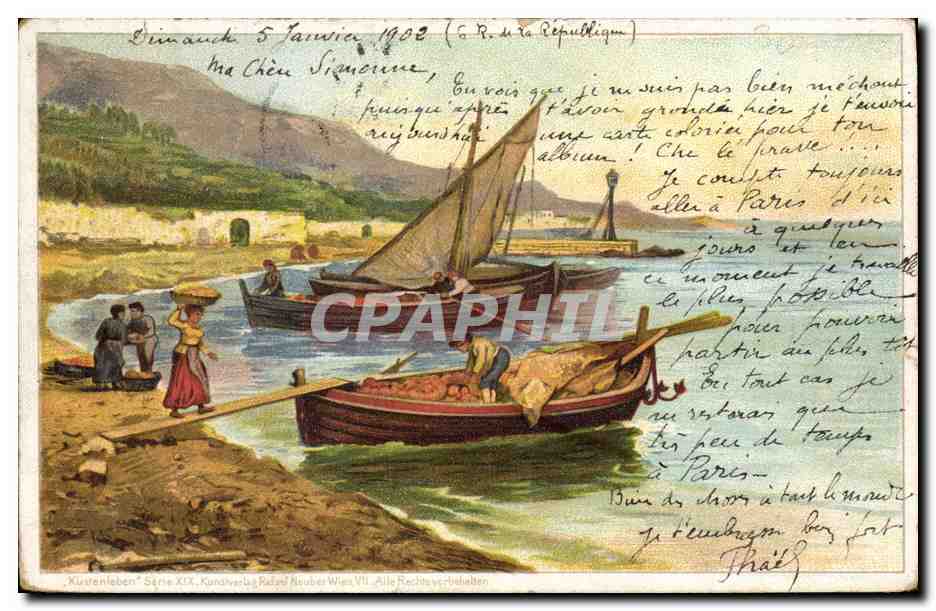 Dimanche 5 Janvier 1902 (6 R. de la République)
Ma Chère Simonne,
Tu vois que je ne suis pas bien méchant
puisqu'après t'avoir grondée hier je t'envoie
aujourd'hui une carte coloriée pour ton
album !
Je compte toujours
aller à Paris d'ici
à quelques
jours et en
ce moment je travaille
le plus possible
pour pouvoir
partir au plus tôt
En tout cas je
ne resterais que
très peu de temps
à Paris—
Bien des choses à tout le monde
je t'embrasse bien fort
CPAPHIL
„Küstenleben" Serie XIX. Kunstverlag Rafael Neuber Wien, VII. Alle Rechte vorbehalten